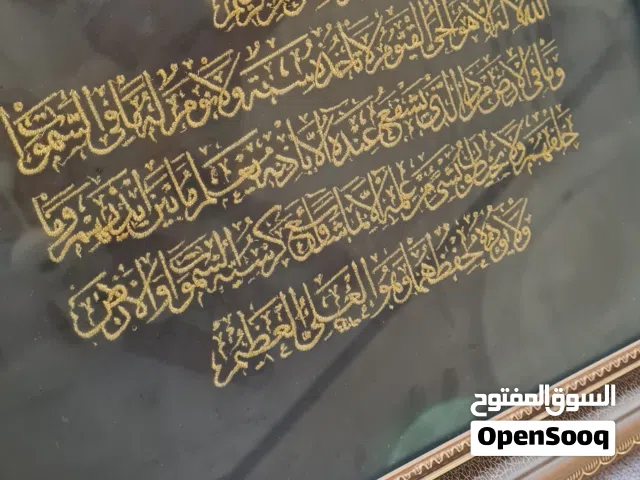 الله لا اله الا هو الحي القيوم لا تأخذه سنة ولا نوم له ما في السموات
وما في الارض من ذا الذي يشفع عنده الا باذنه يعلم ما بين ايديهم وما
خلفهم ولا يحيطون بشئ من علمه الا بما شاء وسع كرسيه السموات والارض
ولا يؤده حفظهما وهو العلي العظيم
السوق المفتوح
OpenSooq